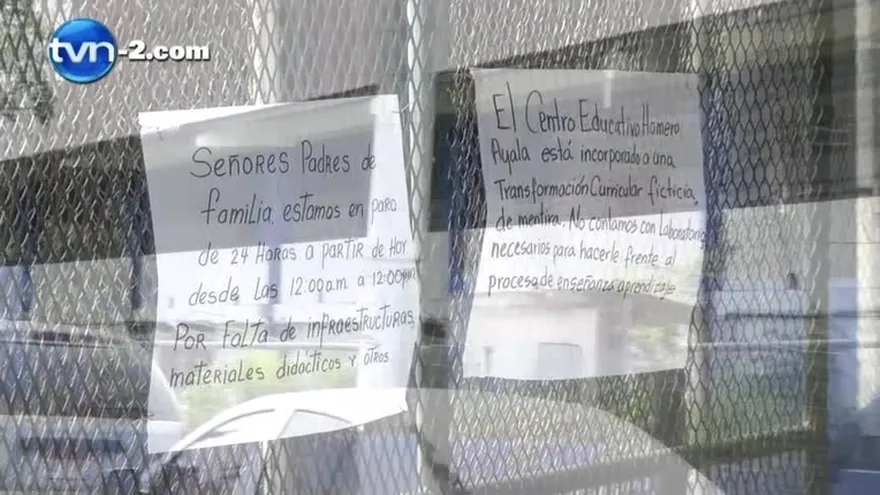 tvn-2.com
SEÑORES PADRES de
familia, estamos en paro
de 24 HORAS a PARTIR de HOY
desde Las 12:00a.m. a 12:00
POR FALTA de infraestructuras,
materiales didácticos y OTROS.
El CENTRO EDUCATIVO Homero
Ayala está incorporado a una
Transformación Curricular ficticia,
de mentira. No contamos con Laboratorios
necesarios para hacerle frente al
proceso de enseñanza aprendizaje